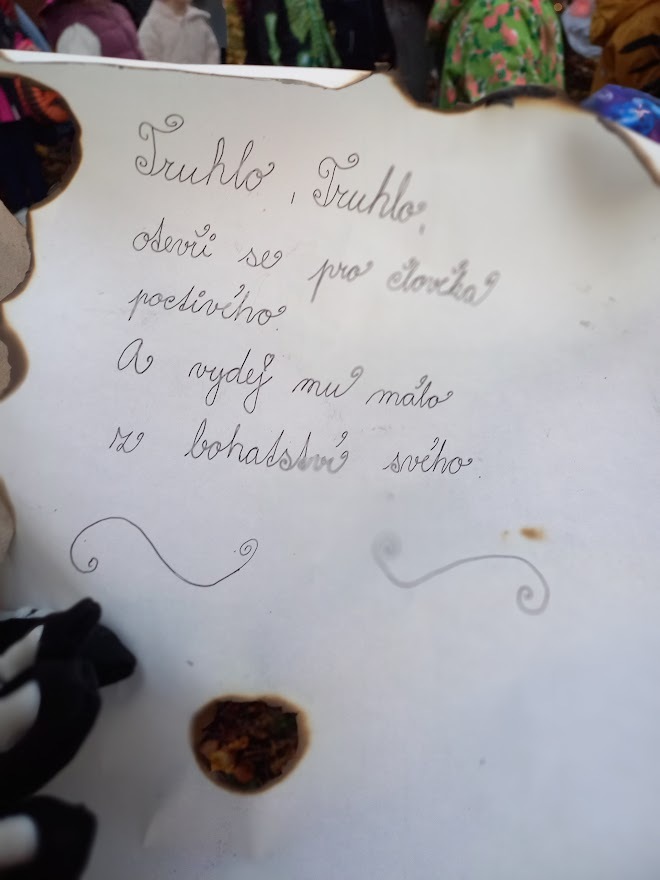 Truhlo, Truhlo,
otevři se pro člověka
poctivého.
A vydej mu málo
z bohatství svého.